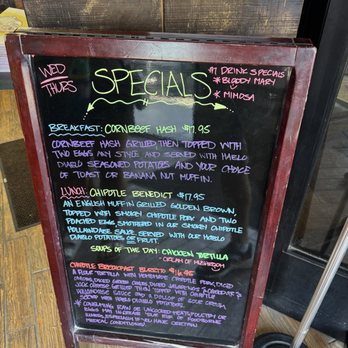 WED
THURS
SPECIALS
$7 DRINK SPECIALS
* BLOODY MARY
* MIMOSA
BREAKFAST: CORNBEEF HASH $17.95
CORNBEEF HASH GRILLED, THEN TOPPED WITH
TWO EGGS ANY STYLE AND SERVED WITH HABLO
DIABLO SEASONED POTATOES AND YOUR CHOICE
OF TOAST OR BANANA NUT MUFFIN.
LUNCH: CHIPOTLE BENEDICT $17.95
AN ENGLISH MUFFIN GRILLED GOLDEN BROWN,
TOPPED WITH SMOKY CHIPOTLE PORK AND TWO
POACHED EGGS SMOTHERED IN OUR SMOKY CHIPOTLE
HOLLANDAISE SAUCE SERVED WITH OUR HABLO
DIABLO POTATOES OR FRUIT
SOUPS OF THE DAY: CHICKEN TORTILLA
- CREAM OF MUSHROOM
CHIPOTLE BREAKFAST BURRITO $16.95
A FLOUR TORTILLA WITH HOMEMADE CHIPOTLE PORK, DICED
HOLLANDAISE SAUCE AND A DOLLOP OF SOUR CREAM
SERVED WITH HABLO DIABLO POTATOES
* CONSUMING RAW OR UNCOOKED MEATS, POULTRY OR
EGGS MAY INCREASE THE RISK OF FOODBORNE
ILLNESS, ESPECIALLY IF YOU HAVE CERTAIN
MEDICAL CONDITIONS